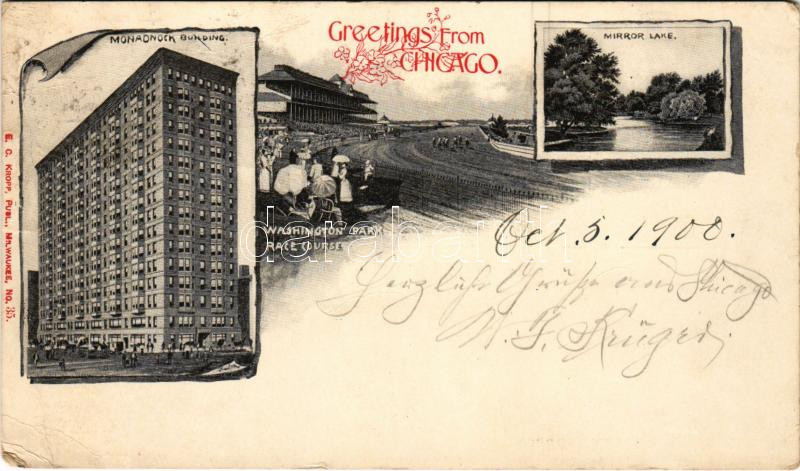 MONADNOCK BUILDING.
Greetings From
CHICAGO.
MIRROR LAKE.
E. C. KROPP, PUBL., MILWAUKEE, NO. 35.
WASHINGTON PARK
RACE COURSE
darabanth
Oct. 5. 1900.
Herzliche Grüße aus Chicago
W. F. Krüger